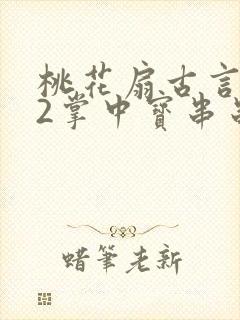 桃花扇古言
2掌中寶串
蜡筆老新